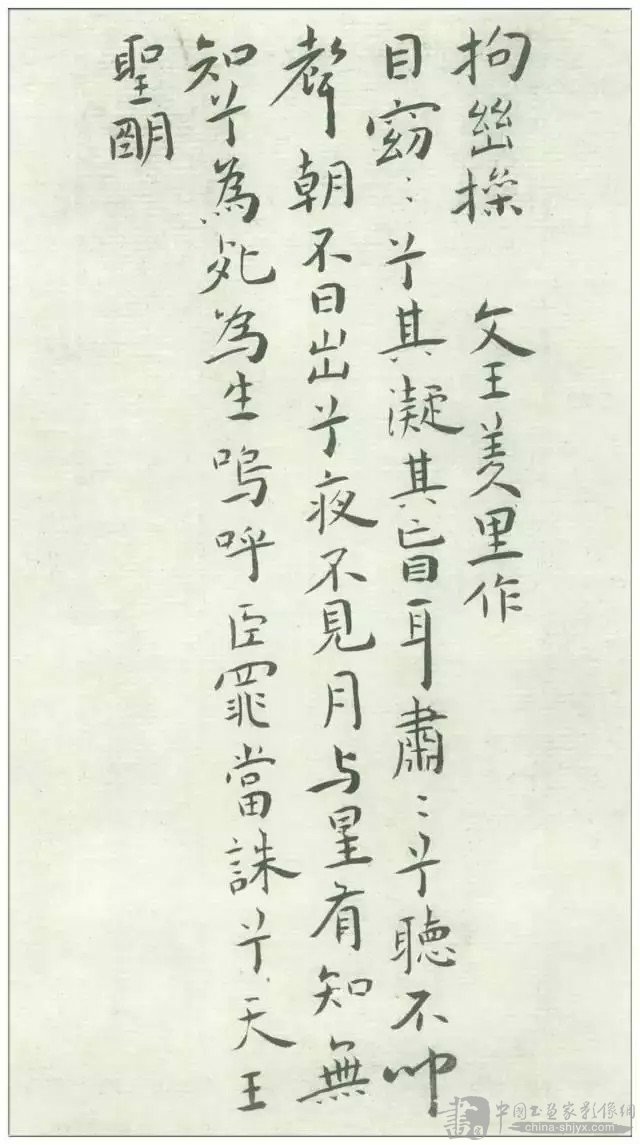 拘幽操 文王羑里作
目窈:兮其凝其盲耳肅:兮聽不叩
聲朝不日出兮夜不見月与星有知無
知兮為死為生嗚呼臣罪當誅兮天王
聖明
中國書畫家影像網
china-shjyx.com